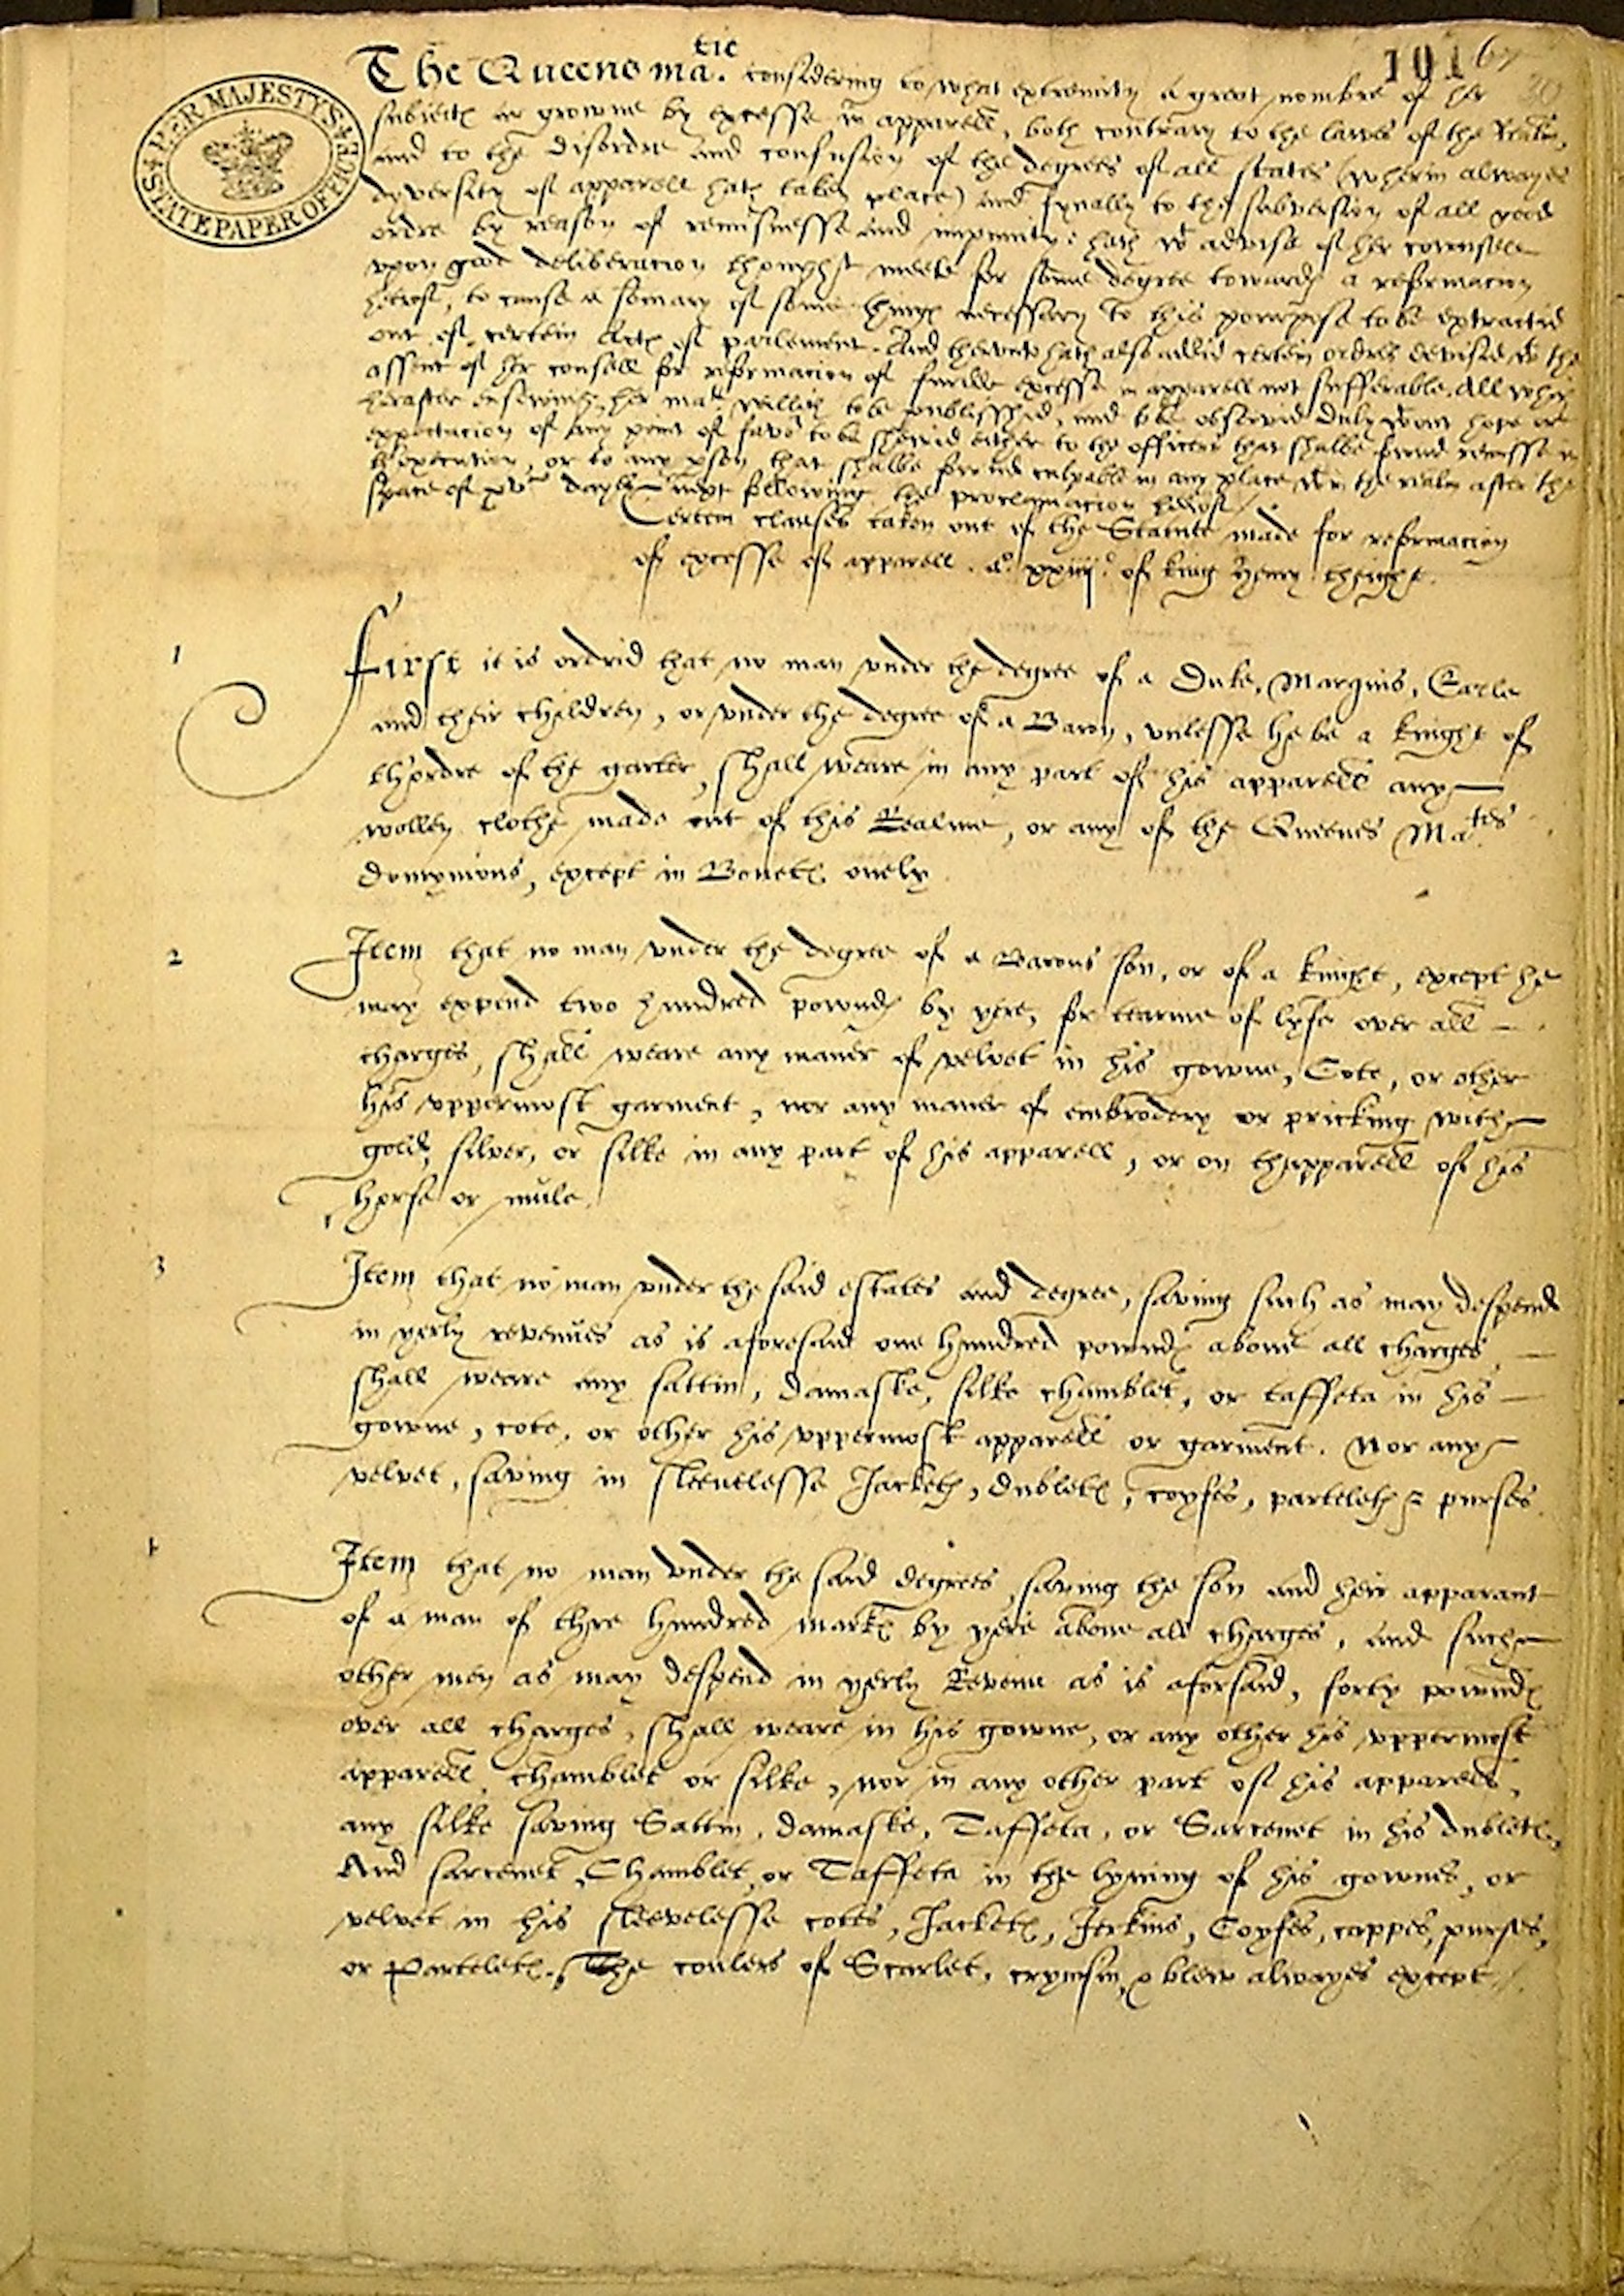 101 67
HER MAJESTY'S
STATE PAPER OFFICE
The Queens ma.tie considering to what extremity a great nombre of her
subiectes ar growne by excesse in apparell, both contrary to the lawes of the Realm,
and to the disordre and confusion of the degrees of all states (wherin alwayes
dyversity of apparell hath taken place) and fynally to the subversion of all good
ordre by reason of remisnesse and impunity: hath wt advise of her counsell
upon good deliberacion thought meete for some degree towardes a reformacion
herof, to cause a somary of some thinges necessary to this pourpose to be extractid
out of certein Actes of parlement. And therunto hath also addid certein ordres devised wt the
assent of her counsell for reformacion of excesse in apparell not sufferable. All which
herafter ensewing, her ma.te willeth to be publisshid, and to be observid duly wtout hope or
expectacion of any point of favor to be shewid either to the officers that shalbe found remisse in
thexecution, or to any pson that shalbe found culpable in any place wtin the realm after the
space of xv dayes next following the proclamacion herof
Certein clauses taken out of the Statute made for reformacion
of excesse of apparell. ao. xxiiijo. of king Henry theight.
1
First it is ordrid that no man under the degree of a Duke, Marquis, Earle
and their children, or under the degree of a Baron, unlesse he be a knight of
thordre of the garter, shall weare in any part of his apparell any
wollen clothe made out of this Realme, or any of the Queenes Ma.tes
domynions, except in Bonetes onely.
2
Item that no man under the degree of a Barons son, or of a knight, except he
may expend two hundred powndes by yere, for tearme of lyfe over all
charges, shall weare any maner of velvet in his gowne, Cote, or other
his uppermost garment, nor any maner of embrodery or pricking with
gold, silver, or silke in any part of his apparell, or on thapparell of his
horse or mule.
3
Item that no man under the said estates and degree, saving such as may despend
in yerly revenues as is aforesaid one hundred powndes above all charges,
shall weare any sattin, damaske, silke chamblet, or taffeta in his
gowne, cote, or other his uppermost apparell or garment. Nor any
velvet, saving in sleevelesse Jacketes, dubletes, coyfes, parteletes & purses.
4
Item that no man under the said degrees, saving the son and heir apparant
of a man of thre hundred markes by yere above all charges, and such
other men as may despend in yerly Revenu as is aforsaid, forty powndes
over all charges, shall weare in his gowne, or any other his uppermost
apparell chamblet or silke, nor in any other part of his apparell,
any silke saving Sattin, damaske, Taffeta, or Sarcenet in his dubletes,
And sarcenet, Chamblet, or Taffeta in the lyning of his gownes, or
velvet in his sleevelesse cotes, Jacketes, Jerkins, Coyfes, cappes, purses,
or Parteletes. The coulers of Scarlet, crymsin, & blew alwayes except